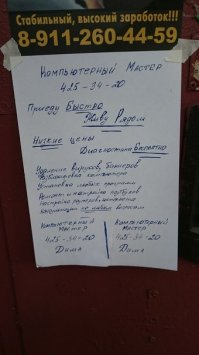 Стабильный, высокий заработок!!!
8-911-260-44-59
Компьютерный Мастер
425-34-20
Приеду Быстро
Живу Рядом
Низкие цены
Диагностика Бесплатно
Удаление вирусов, баннеров
Разблокировка компьютера
Установка любых программ
Ремонт и настройка ноутбуков
Настройка роутеров, интернета
Консультации по любым вопросам
Компьютерный
Мастер
425-34-20
Дима
Компьютерный
Мастер
425-34-20
Дима